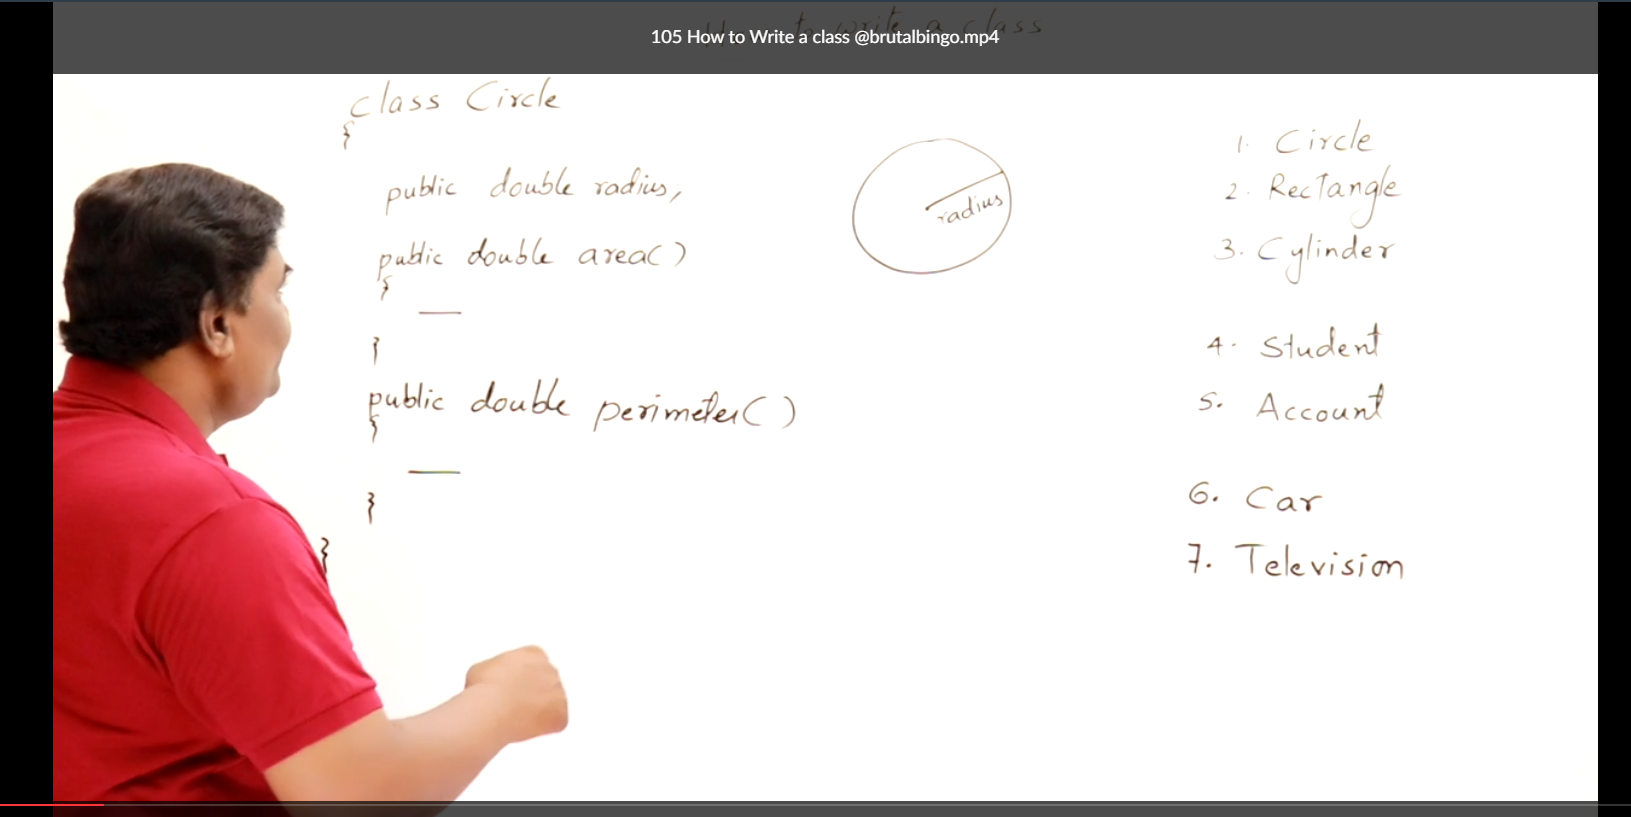 How to write a class
105 How to Write a class @brutalbingo.mp4
class Circle
{
public double radius;
public double area()
{
}
public double perimeter()
{
}
}
radius
1. Circle
2. Rectangle
3. Cylinder
4. Student
5. Account
6. Car
7. Television